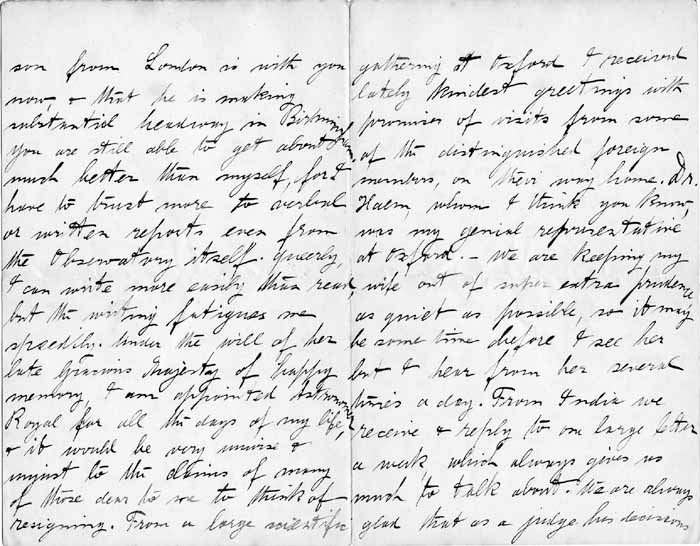 son from London is with you
now, & that he is making
substantial headway in
You are still able to get about
much better than myself, for I
have to trust more to verbal
or written reports even from
the Observatory itself. Queerly,
I can write more easily than read,
but the writing fatigues me
speedily. Under the will of her
late Gracious Majesty of happy
memory, I am appointed Astronomer
Royal for all the days of my life,
& it would be very unwise &
unjust to the claims of many
of those dear to me to think of
resigning. From a large scientific
gathering at Oxford I received
lately kindest greetings with
promises of visits from some
of the distinguished foreign
members, on their way home. Dr.
whom I think you know,
was my genial representative
at Oxford. - We are keeping my
wife out of super extra prudence
as quiet as possible, so it may
be some time before I see her
but I hear from her several
times a day. From India we
receive & reply to one large letter
a week which always gives us
much to talk about. We are always
glad that as a judge his decisions